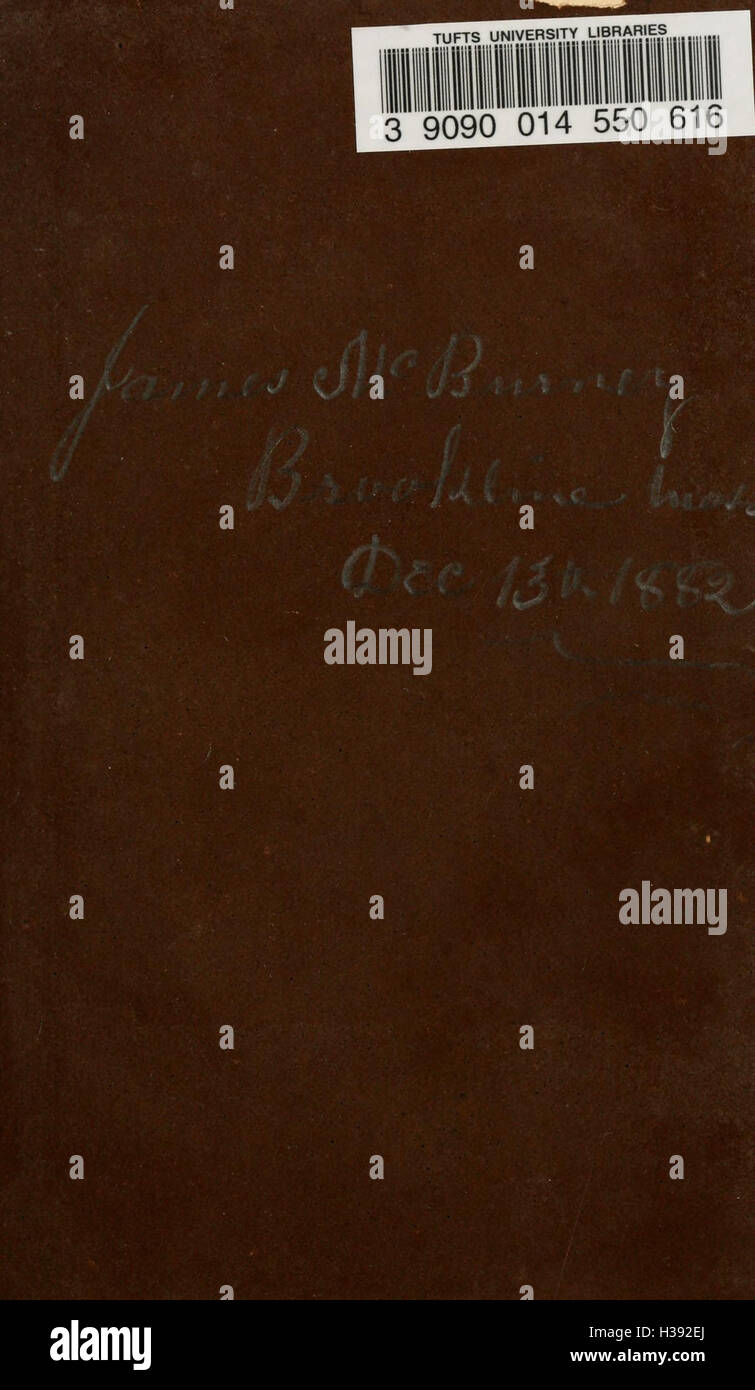 TUFTS UNIVERSITY LIBRARIES
3 9090 014 550 616
James McBurney
Brookline Mass
Dec 13th 1882
a
alamy
alamy
Image ID: H392EJ
www.alamy.com